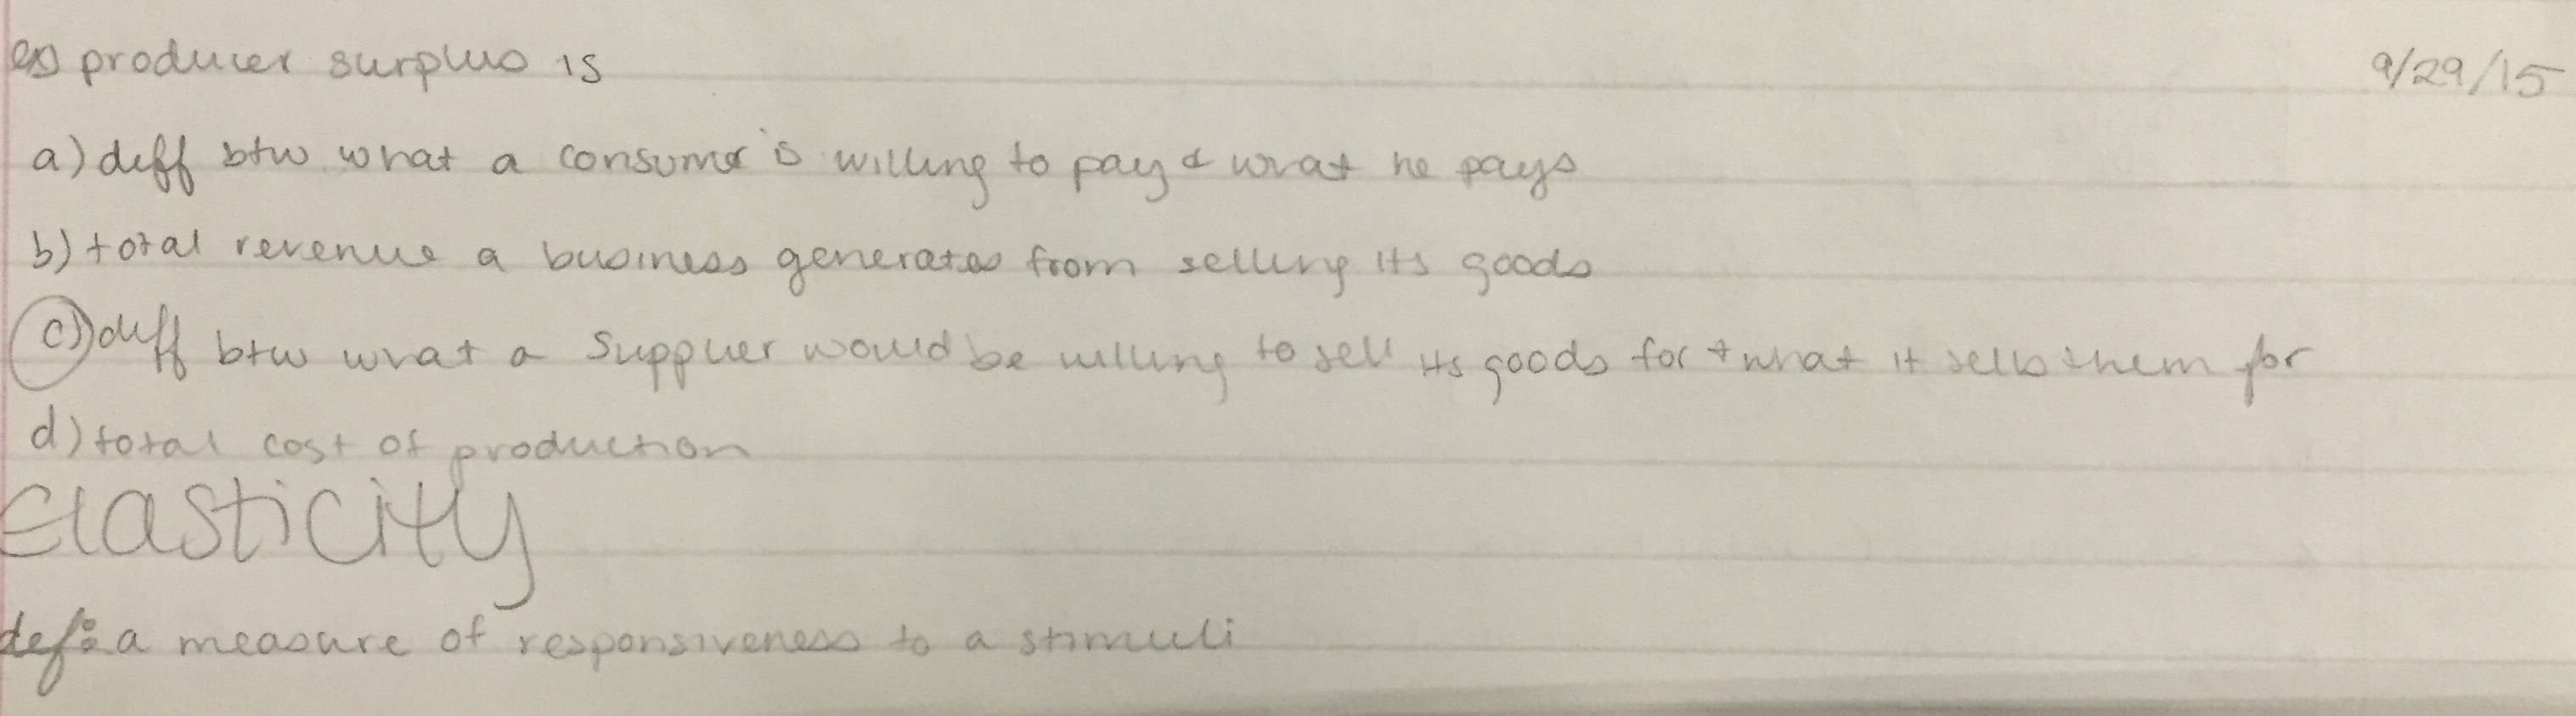 ex) producer surplus is 9/29/15
a) diff btw what a consumer is willing to pay & what he pays
b) total revenue a business generates from selling its goods
c) diff btw what a supplier would be willing to sell its goods for + what it sells them for
d) total cost of production
Elasticity
def: a measure of responsiveness to a stimuli